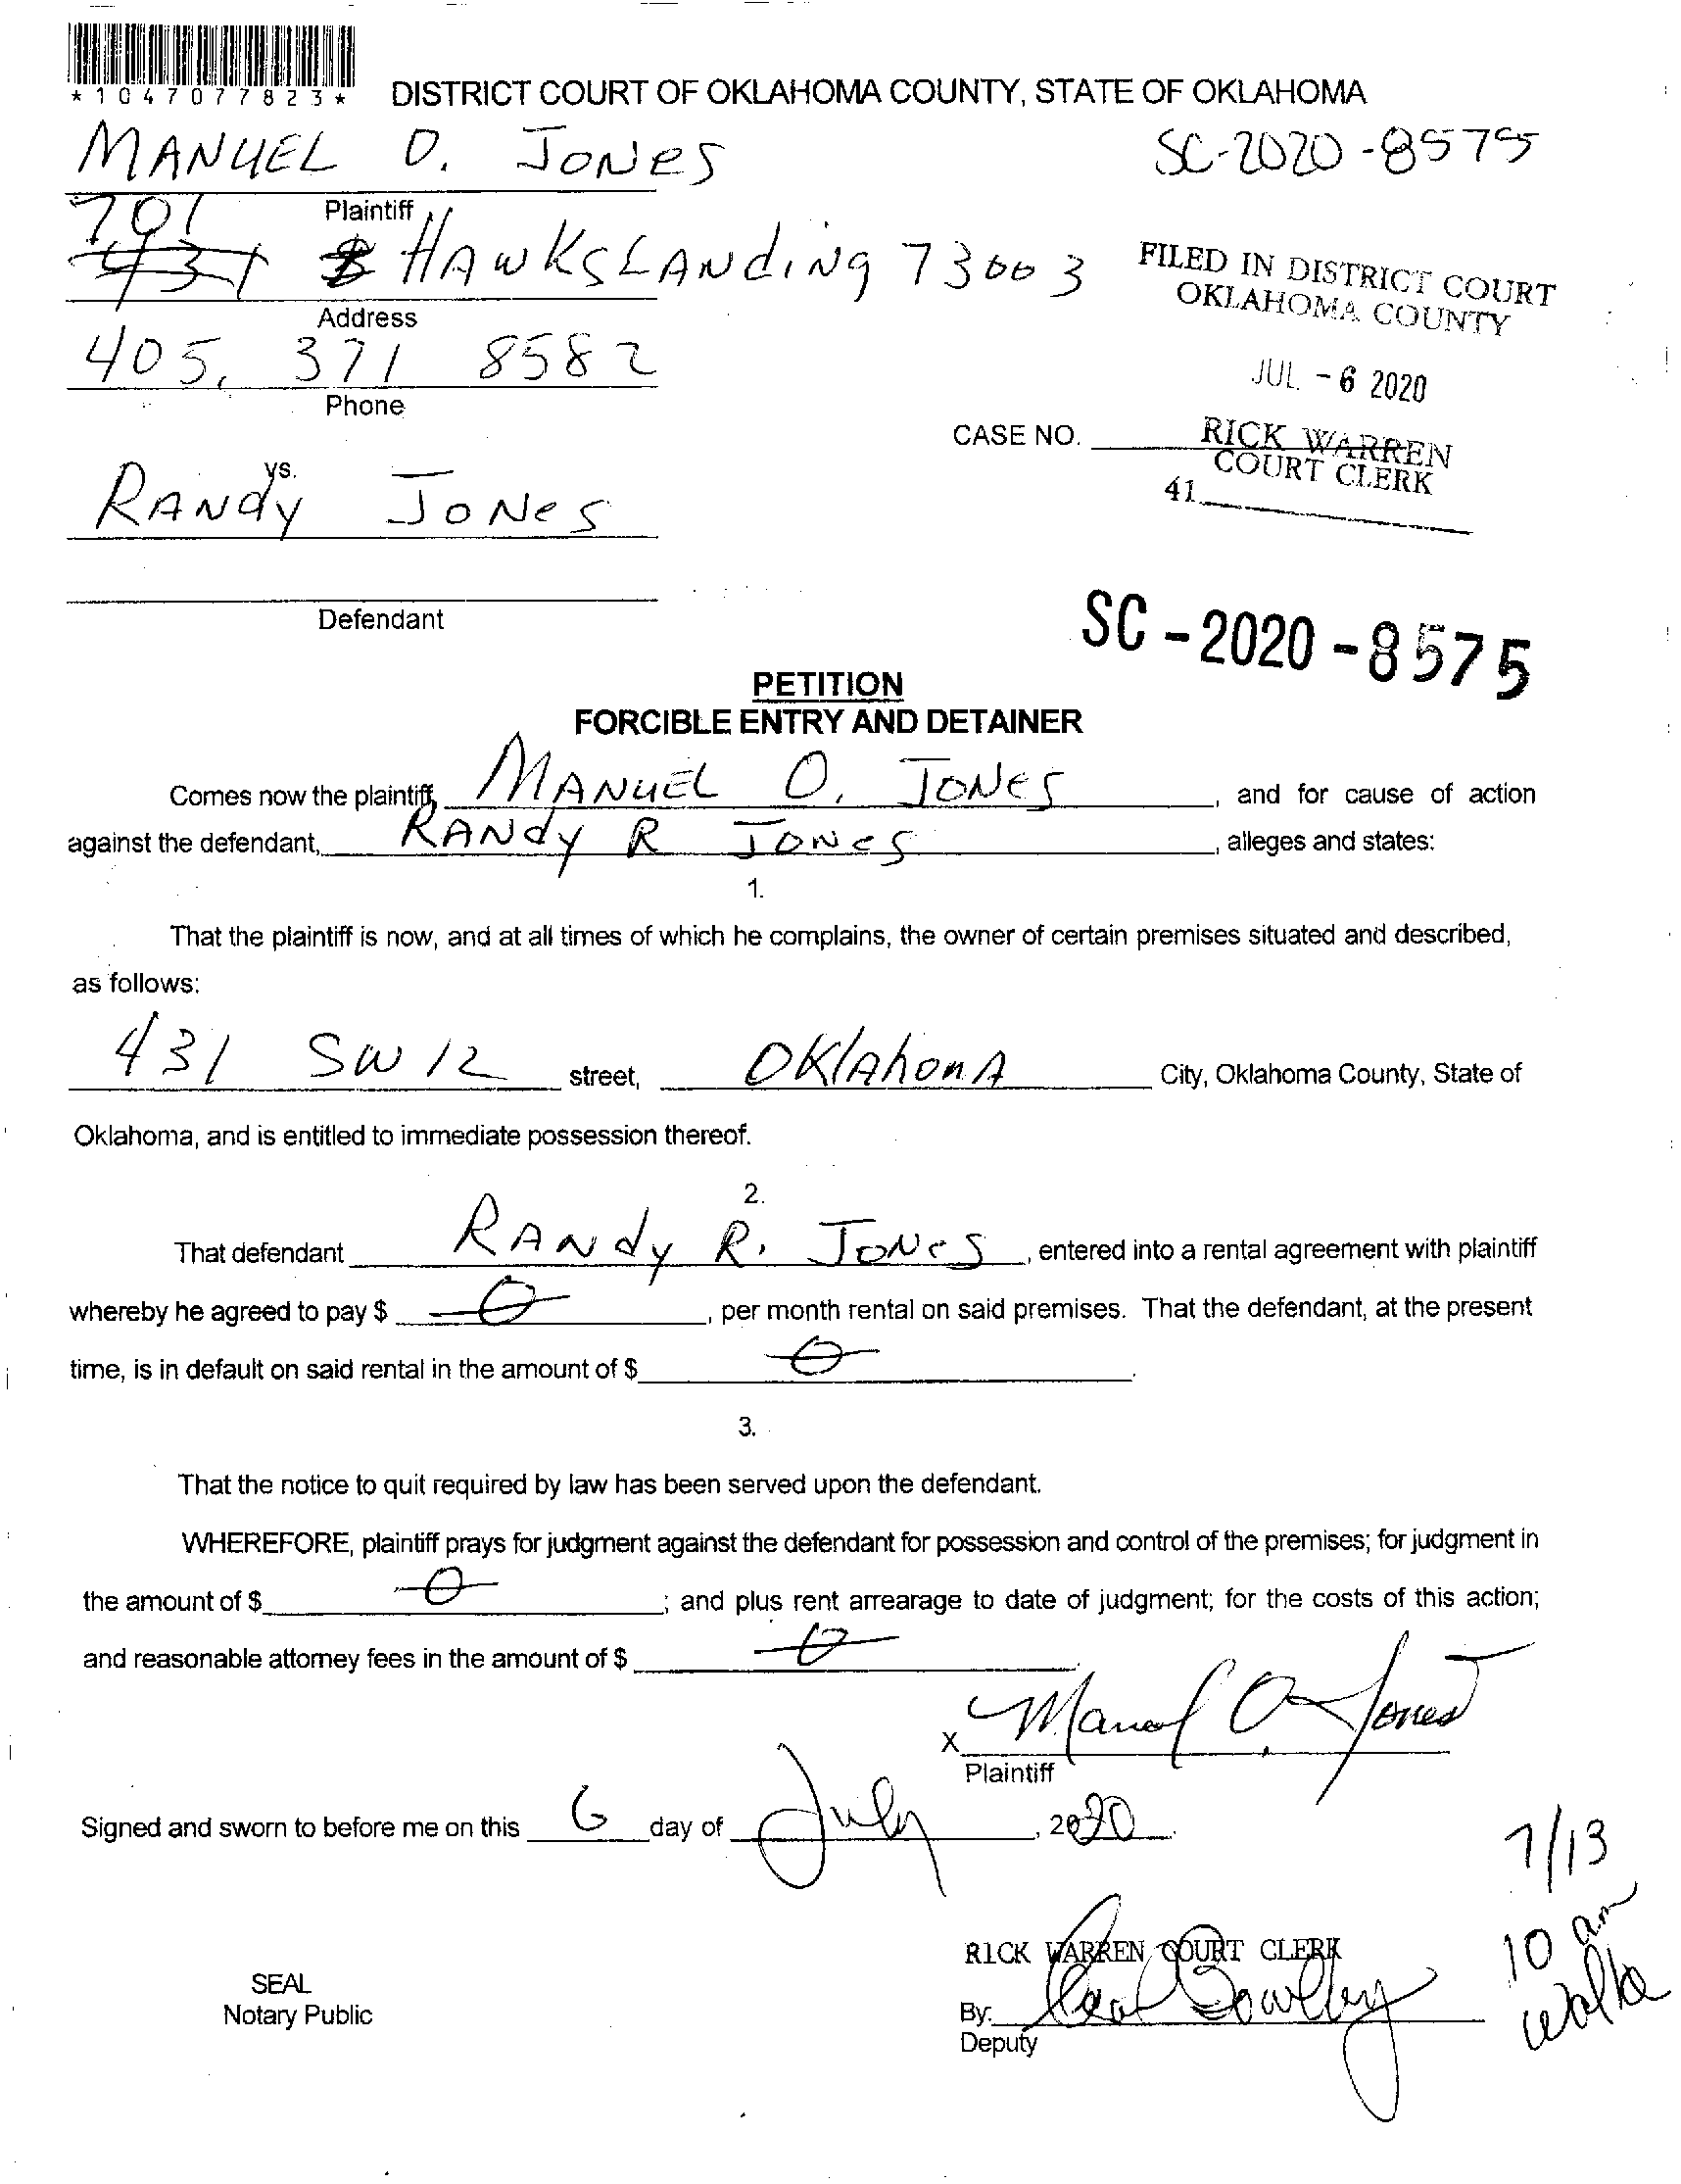 *1047077823*
DISTRICT COURT OF OKLAHOMA COUNTY, STATE OF OKLAHOMA
MANUEL O. JONES
SC-2020-8575
Plaintiff
701
431 HAWKSLANDING 73003
FILED IN DISTRICT COURT
OKLAHOMA COUNTY
Address
405. 371 8582
JUL - 6 2020
Phone
CASE NO.
RICK WARREN
COURT CLERK
41
vs.
RANDY JONES
Defendant
SC-2020-8575
PETITION
FORCIBLE ENTRY AND DETAINER
Comes now the plaintiff, MANUEL O. JONES, and for cause of action
against the defendant, RANDY R JONES, alleges and states:
1.
That the plaintiff is now, and at all times of which he complains, the owner of certain premises situated and described,
as follows:
431 SW 12 street, OKlAhomA City, Oklahoma County, State of
Oklahoma, and is entitled to immediate possession thereof.
2.
That defendant RANDY R. JONES, entered into a rental agreement with plaintiff
whereby he agreed to pay $ 0, per month rental on said premises. That the defendant, at the present
time, is in default on said rental in the amount of $ 0.
3.
That the notice to quit required by law has been served upon the defendant.
WHEREFORE, plaintiff prays for judgment against the defendant for possession and control of the premises; for judgment in
the amount of $ 0; and plus rent arrearage to date of judgment; for the costs of this action;
and reasonable attorney fees in the amount of $ 0
X Manuel O. Jones
Plaintiff
Signed and sworn to before me on this 6 day of July, 2020.
7/13
10 am
RICK WARREN COURT CLERK
SEAL
Notary Public
By:
Deputy